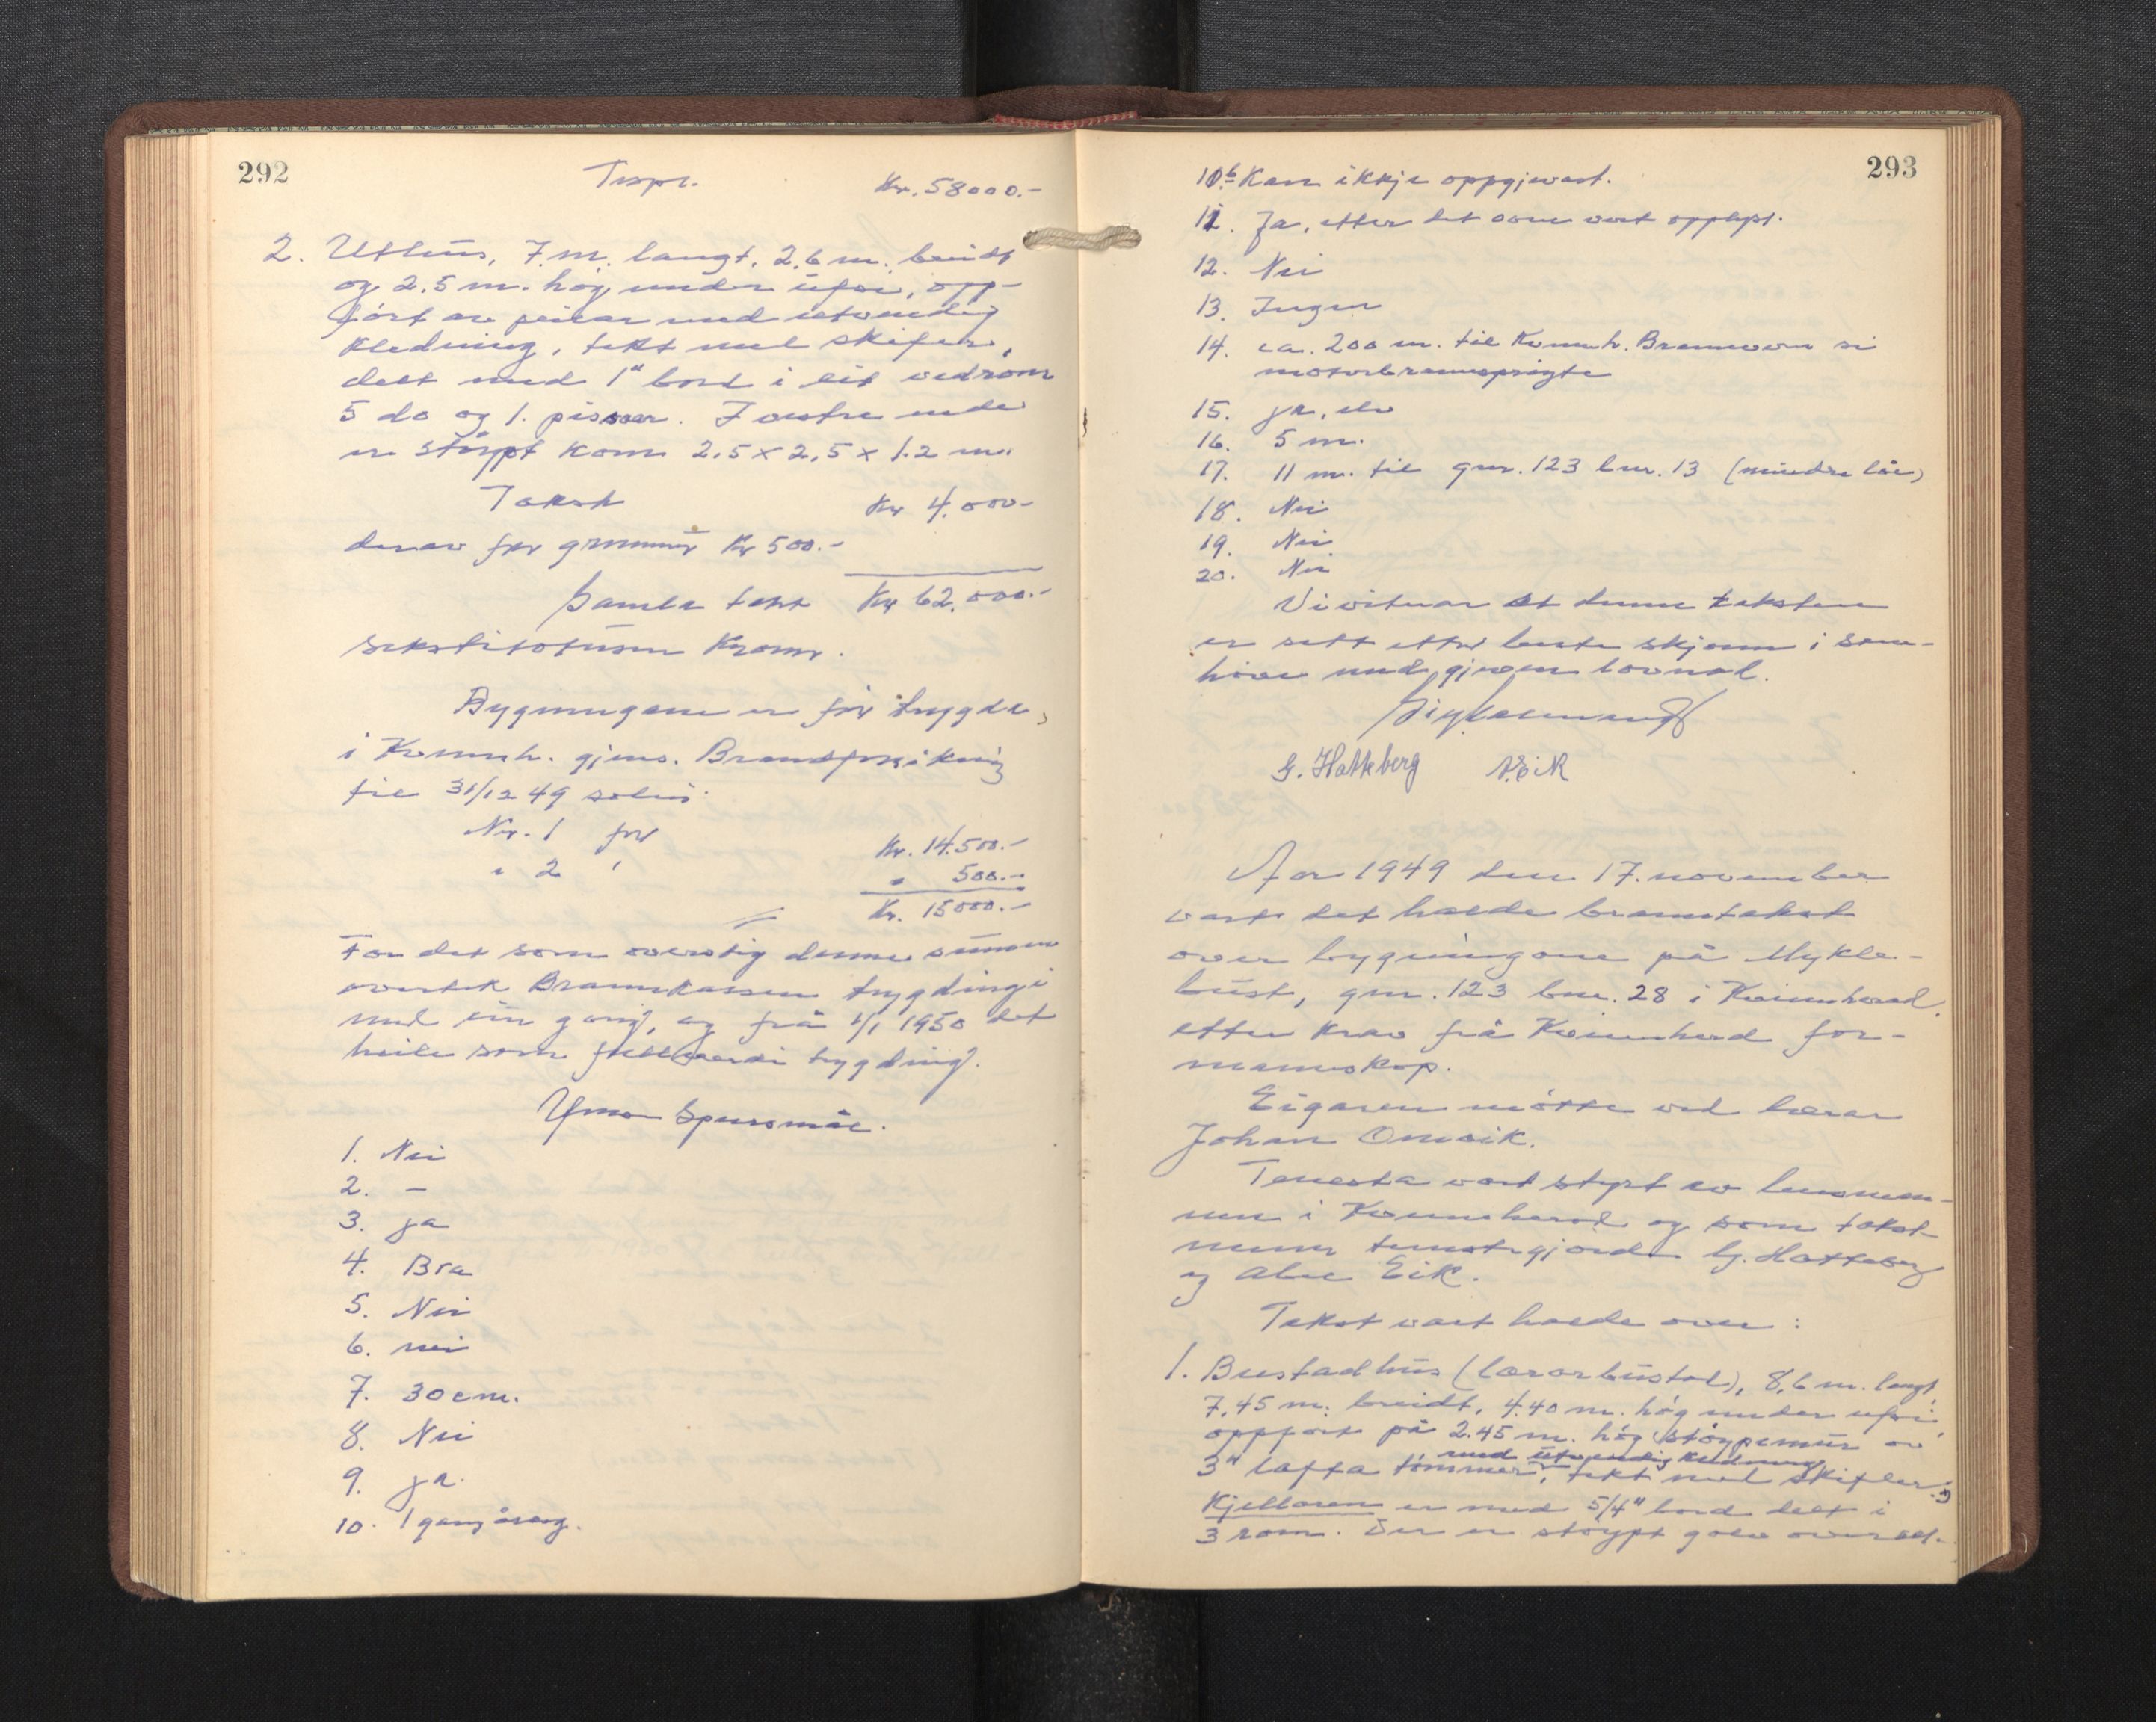 292
Trspt. Kr. 58000.-
2. Uthus, 7 m. langt, 2,6 m. breidt
og 2.5 m. høg under ufsi, opp-
ført av peilar med utvendig
kledning, tekt med skifer,
delt med 1" bord i eit vedrom
5 do og 1. pissoar. I vestre ende
er støypt kom 2,5 x 2,5 x 1.2 m.
Takst Kr 4.000-
derav for grunnmur Kr 500.-
Samla takst Kr 62.000.-
sekstitotusen Kroner.
Bygningane er før trygda,
i Kvinnh. gjens. Brandforsikring
til 31/12 49 soleis:
Nr. 1 for Kr. 14.500.-
" 2 " " 500.-
Kr. 15000.-
For det som overstig denne summen
overtek Brannkassen trygdingi
med ein gong, og frå 1/1 1950 det
heile som fullverdi trygding.
Ymse Spursmål.
1. Nei
2. –
3. ja
4. Bra
5. Nei
6. nei
7. 30 cm.
8. Nei
9. ja
10. 1 gang årleg.
293
10.b Kan ikkje oppgjevast.
11. Ja, etter det som vart opplyst.
12. Nei
13. Ingen
14. ca. 200 m. til Kvinnh. Brannvern si
motorbrannsprøyte
15. ja, elv
16. 5 m.
17. 11 m. til gnr. 123 bnr. 13 (mindre løe)
18. Nei
19. Nei
20. Nei
Vi vitnar at denne taksten
er sett etter beste skjønn i sam-
høve med gjeven lovnad.
G. Hatteberg A. Eik
Aar 1949 den 17. november
vart det halde branntakst
over bygningane på Mykle-
bust, gnr. 123 bnr. 28 i Kvinnherad,
etter krav frå Kvinnherad for-
mannskap.
Eigaren møtte ved lærar
Johan Omvik.
Tenesta vart styrt av lensman-
nen i Kvinnherad og som takst-
menn tenestegjorde G. Hatteberg
og Alve Eik.
Takst vart halde over:
1. Bustadhus (lærarbustad), 8,6 m. langt,
7,45 m. breidt, 4.40 m. høg under ufsi,
oppført på 2.45 m. høg støypemur av
med utvendig kledning
3" lafta tømmer, tekt med skifer.
Kjellaren er med 5/4" bord delt i
3 rom. Der er støypt golv overalt.